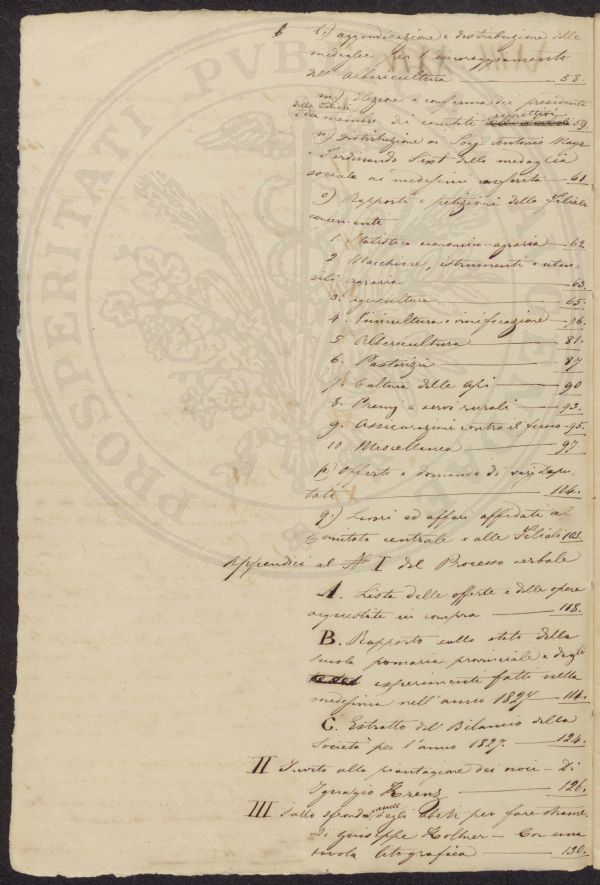 l.) aggiudicazione e distribuzione delle
medaglie per l'incoraggiamento
dell'Albericultura — 58.
m.) elezione e conferma dei presidente
delle Filiali
e dei membri dei comitati respettivi 59.
n.) Distribuzione ai Sorj Antonio Mayr
e Ferdinando Sixt della medaglia
sociale ai medesimi conferita — 61.
o) Rapporti e petizioni delle Filiali
concernenti
1. Statistica economico-agraria — 62.
2 Macchine, istrumenti e uten-
sili agraria — 63.
3. agricultura — 65.
4. Vinicultura e vinificazione — 76.
5 Albericultura — 81.
6. Pastorizia — 87
7. Cultura delle Api — 90
8. Premj a servi rurali — 93.
9. Assicurazioni contro il fuoco — 95.
10. Miscellanea — 97.
p.) Offerte e domande di varj Depu-
tati — 104.
q.) Lavori ed affari affidati al
Comitato centrale e alle Filiali
Appendici al N° I del Processo verbale
A. Lista delle offerte e delle opere
acquistate in compra — 108.
B. Rapporto sullo stato della
scuola pomaria provinciale e degli
esperimenti fatti nella
medesima nell'anno 1827 — 114.
C. Estratto del Bilancio della
Società per l'anno 1827. — 124.
II Invito alla piantagione dei noci — Di
Ignazio Krenz — 126.
III Sullo sfrondar degli Abeti per fare strame.
Di Giuseppe Zollner — Con una
tavola litografica — 130.
PROSPERITATI PVBLICAE